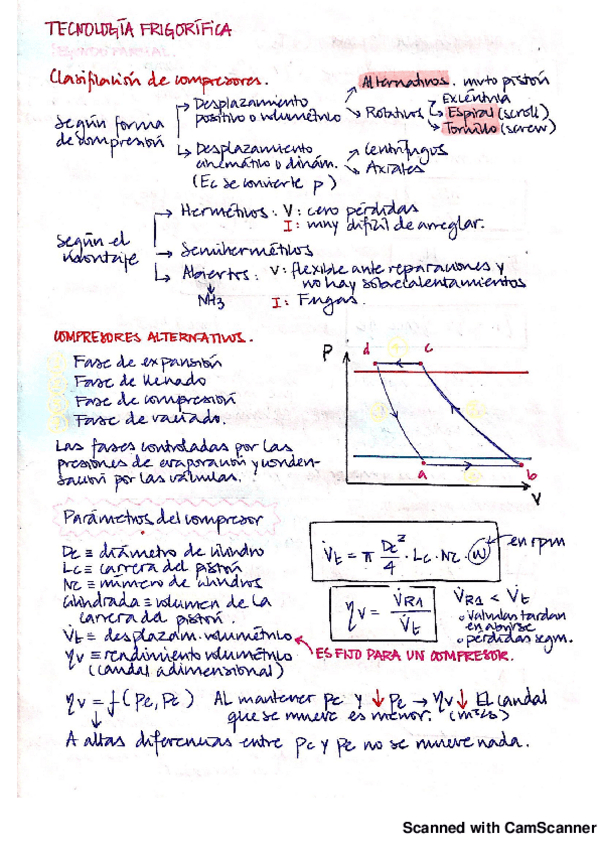 TECNOLOGÍA FRIGORÍFICA
SEGUNDO PARCIAL.
Clasificación de compresores.
Según forma de compresión
→ Desplazamiento positivo o volumétrico
Alternativos. mvto pistón
Rotativos
Excéntrica
Espiral (scroll)
Tornillo (screw)
→ Desplazamiento cinemático o dinám.
(Ec se convierte p)
Centrífugos
Axiales
Según el montaje
→ Herméticos: V: cero pérdidas
I: muy difícil de arreglar.
→ Semiherméticos
→ Abiertos: V: flexible ante reparaciones y
no hay sobrecalentamientos
NH3 I: Fugas.
COMPRESORES ALTERNATIVOS.
Fase de expansión
Fase de llenado
Fase de compresión
Fase de vaciado.
Las fases controladas por las
presiones de evaporación y conden-
sación por las válvulas.
P
d
c
a
b
V
Parámetros del compresor
Dc ≡ diámetro de cilindro
Lc ≡ carrera del pistón
Nc ≡ número de cilindros
Cilindrada ≡ volumen de la
carrera del pistón.
V̇t ≡ desplazam. volumétrico
ηv ≡ rendimiento volumétrico
(caudal adimensional)
V̇t = π Dc²/4 · Lc · Nc · ω
en rpm
ηv = V̇R1 / V̇t
V̇R1 < V̇t
• válvulas tardan
en abrirse
• pérdidas segm.
ES FIJO PARA UN COMPRESOR.
ηv = f(Pe, Pc) AL mantener Pc y ↓ Pe → ηv ↓ El caudal
que se mueve es menor. (m³/s)
A altas diferencias entre Pc y Pe no se mueve nada.
Scanned with CamScanner